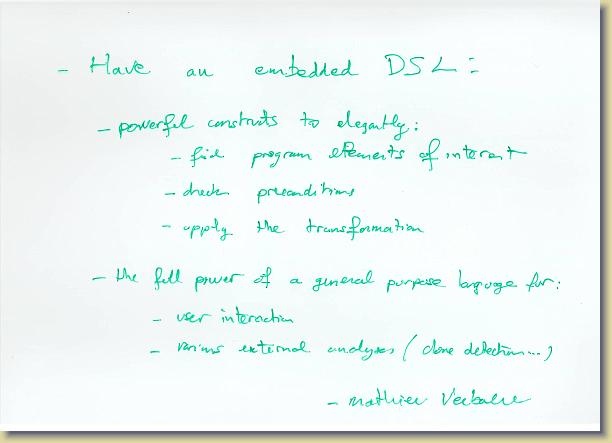 - Have an embedded DSL:
- powerful constructs to elegantly:
- find program elements of interest
- check preconditions
- apply the transformation
- the full power of a general purpose language for:
- user interaction
- various external analyses (clone detection...)
- Mathieu Verbaere